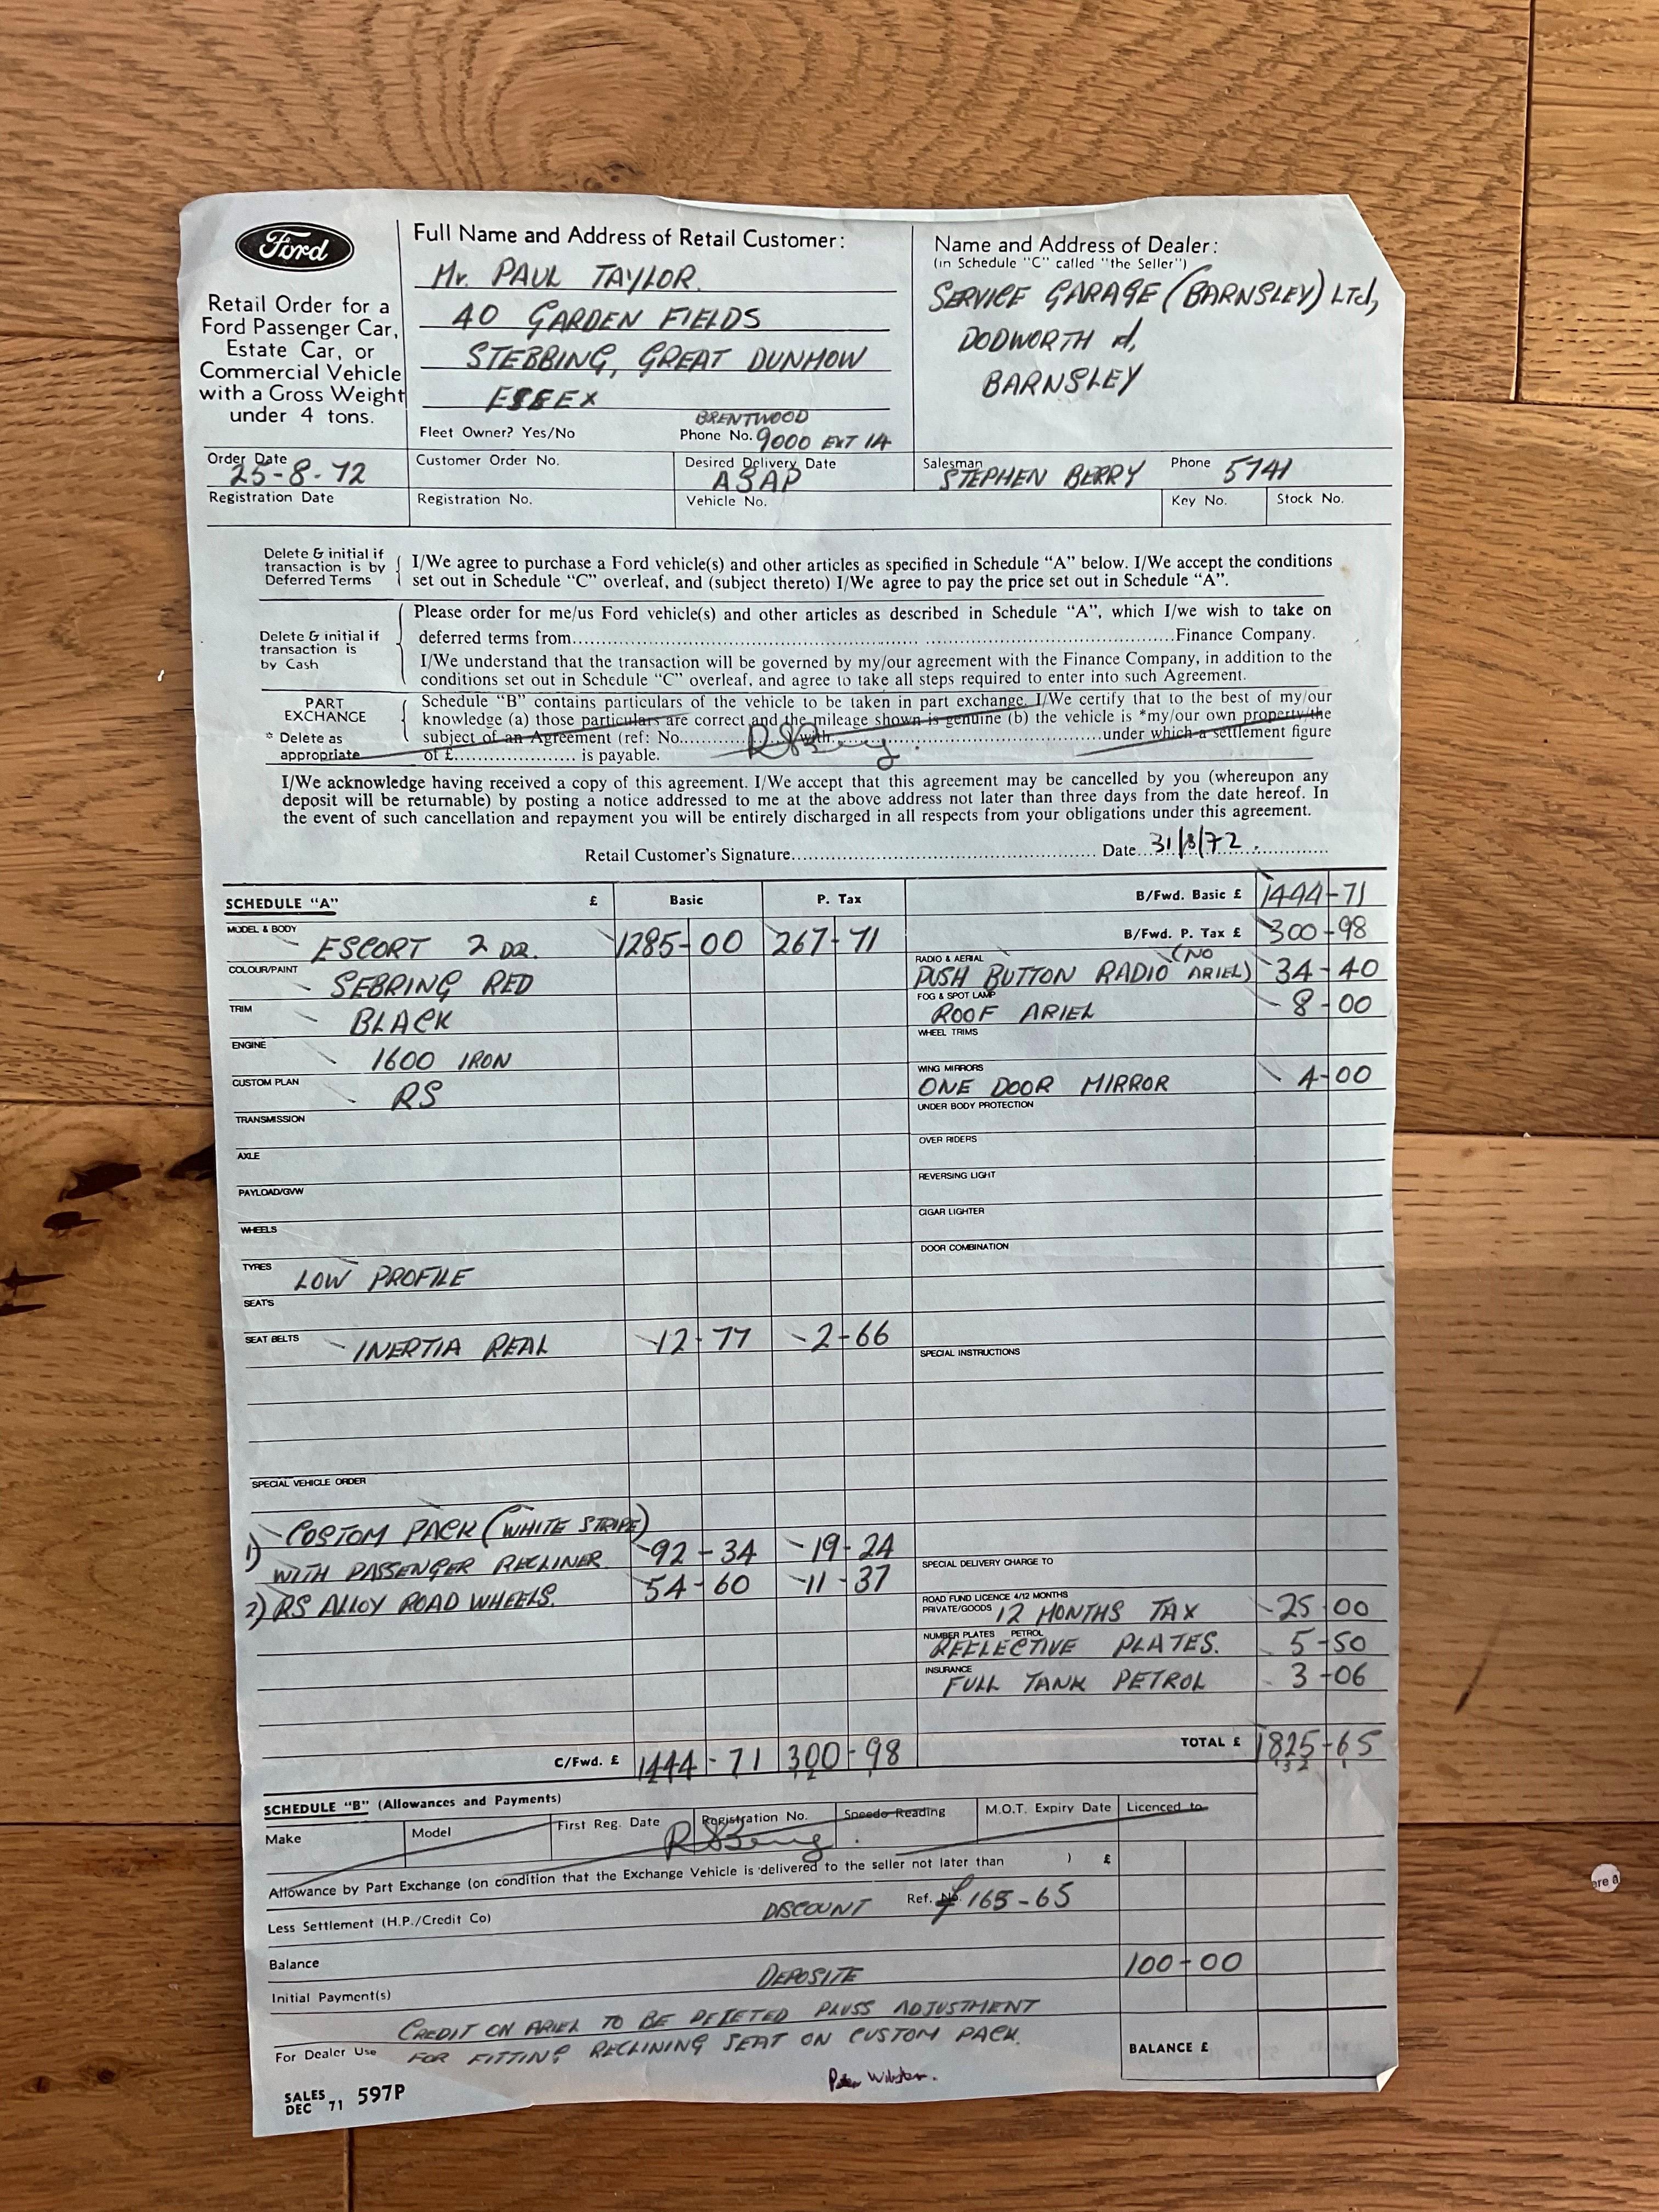 Ford
Retail Order for a
Ford Passenger Car,
Estate Car, or
Commercial Vehicle
with a Gross Weight
under 4 tons.
Full Name and Address of Retail Customer:
Mr. PAUL TAYLOR.
40 GARDEN FIELDS
STEBBING, GREAT DUNMOW
ESSEX
Fleet Owner? Yes/No
BRENTWOOD
Phone No. 9000 EXT 14
Name and Address of Dealer:
(in Schedule "C" called "the Seller")
SERVICE GARAGE (BARNSLEY) LTd,
DODWORTH rd,
BARNSLEY
Order Date
25-8-72
Customer Order No.
Desired Delivery Date
ASAP
Salesman
STEPHEN BERRY
Phone 5741
Registration Date
Registration No.
Vehicle No.
Key No.
Stock No.
Delete & initial if
transaction is by
Deferred Terms
I/We agree to purchase a Ford vehicle(s) and other articles as specified in Schedule "A" below. I/We accept the conditions
set out in Schedule "C" overleaf, and (subject thereto) I/We agree to pay the price set out in Schedule "A".
Delete & initial if
transaction is
by Cash
Please order for me/us Ford vehicle(s) and other articles as described in Schedule "A", which I/we wish to take on
deferred terms from.......... Finance Company.
I/We understand that the transaction will be governed by my/our agreement with the Finance Company, in addition to the
conditions set out in Schedule "C" overleaf, and agree to take all steps required to enter into such Agreement.
PART
EXCHANGE
* Delete as
appropriate
Schedule "B" contains particulars of the vehicle to be taken in part exchange. I/We certify that to the best of my/our
knowledge (a) those particulars are correct and the mileage shown is genuine (b) the vehicle is *my/our own property/the
subject of an Agreement (ref: No.......... with.......... under which a settlement figure
of £.......... is payable.
I/We acknowledge having received a copy of this agreement. I/We accept that this agreement may be cancelled by you (whereupon any
deposit will be returnable) by posting a notice addressed to me at the above address not later than three days from the date hereof. In
the event of such cancellation and repayment you will be entirely discharged in all respects from your obligations under this agreement.
Retail Customer's Signature.......... Date...31/8/72.
SCHEDULE "A" £ Basic P. Tax
MODEL & BODY
ESCORT 2 DR. 1285-00 267-71
COLOUR/PAINT
SEBRING RED
TRIM
BLACK
ENGINE
1600 IRON
CUSTOM PLAN
RS
TRANSMISSION
AXLE
PAYLOAD/GVW
WHEELS
TYRES
LOW PROFILE
SEATS
SEAT BELTS
INERTIA REAL 12-77 2-66
SPECIAL VEHICLE ORDER
1) COSTOM PACK (WHITE STRIPE)
WITH PASSENGER RECLINER 92-34 19-24
2) RS ALLOY ROAD WHEELS. 54-60 11-37
C/Fwd. £ 1444-71 300-98
B/Fwd. Basic £ 1444-71
B/Fwd. P. Tax £ 300-98
RADIO & AERIAL
PUSH BUTTON RADIO (NO ARIEL) 34-40
FOG & SPOT LAMP
ROOF ARIEL 8-00
WHEEL TRIMS
WING MIRRORS
ONE DOOR MIRROR 4-00
UNDER BODY PROTECTION
OVER RIDERS
REVERSING LIGHT
CIGAR LIGHTER
DOOR COMBINATION
SPECIAL INSTRUCTIONS
SPECIAL DELIVERY CHARGE TO
ROAD FUND LICENCE 4/12 MONTHS
PRIVATE/GOODS 12 MONTHS TAX 25-00
NUMBER PLATES PETROL
REFLECTIVE PLATES. 5-50
INSURANCE
FULL TANK PETROL 3-06
TOTAL £ 1825-65
SCHEDULE "B" (Allowances and Payments)
Make
Model
First Reg. Date
Registration No.
Speedo Reading
M.O.T. Expiry Date
Licenced to
Allowance by Part Exchange (on condition that the Exchange Vehicle is delivered to the seller not later than ) £
Less Settlement (H.P./Credit Co) DISCOUNT Ref. No. £165-65
Balance
DEPOSITE 100-00
Initial Payment(s)
CREDIT ON ARIEL TO BE DELETED PLUSS ADJUSTMENT
For Dealer Use FOR FITTING RECLINING SEAT ON CUSTOM PACK.
BALANCE £
SALES
DEC 71 597P